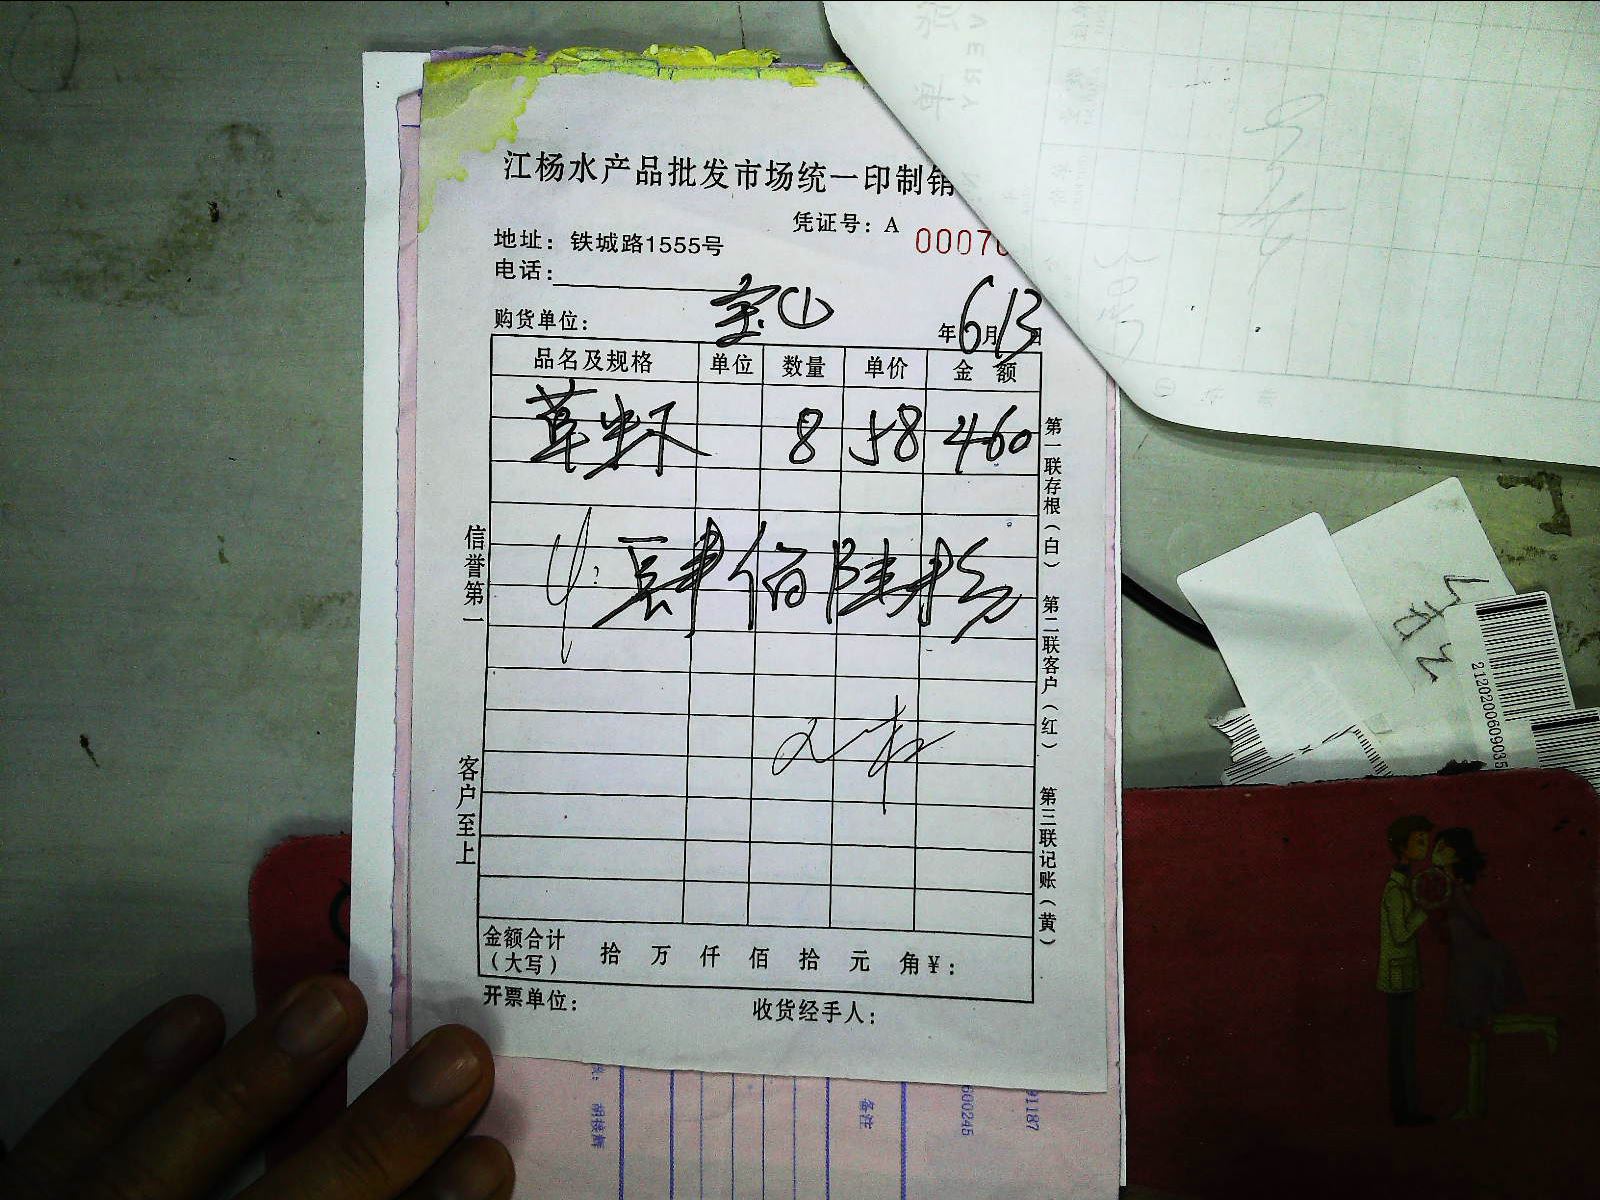 江杨水产品批发市场统一印制销
凭证号：A 00076
地址：铁城路1555号
电话：
购货单位： 宝山 年6月13日
品名及规格 单位 数量 单价 金额
草虾 8 58 460
肆佰陆拾
信誉第一
客户至上
第一联存根（白） 第二联客户（红） 第三联记账（黄）
金额合计（大写） 拾 万 仟 佰 拾 元 角￥：
开票单位： 收货经手人：
备注
600245
91187
2120200609035
VERY